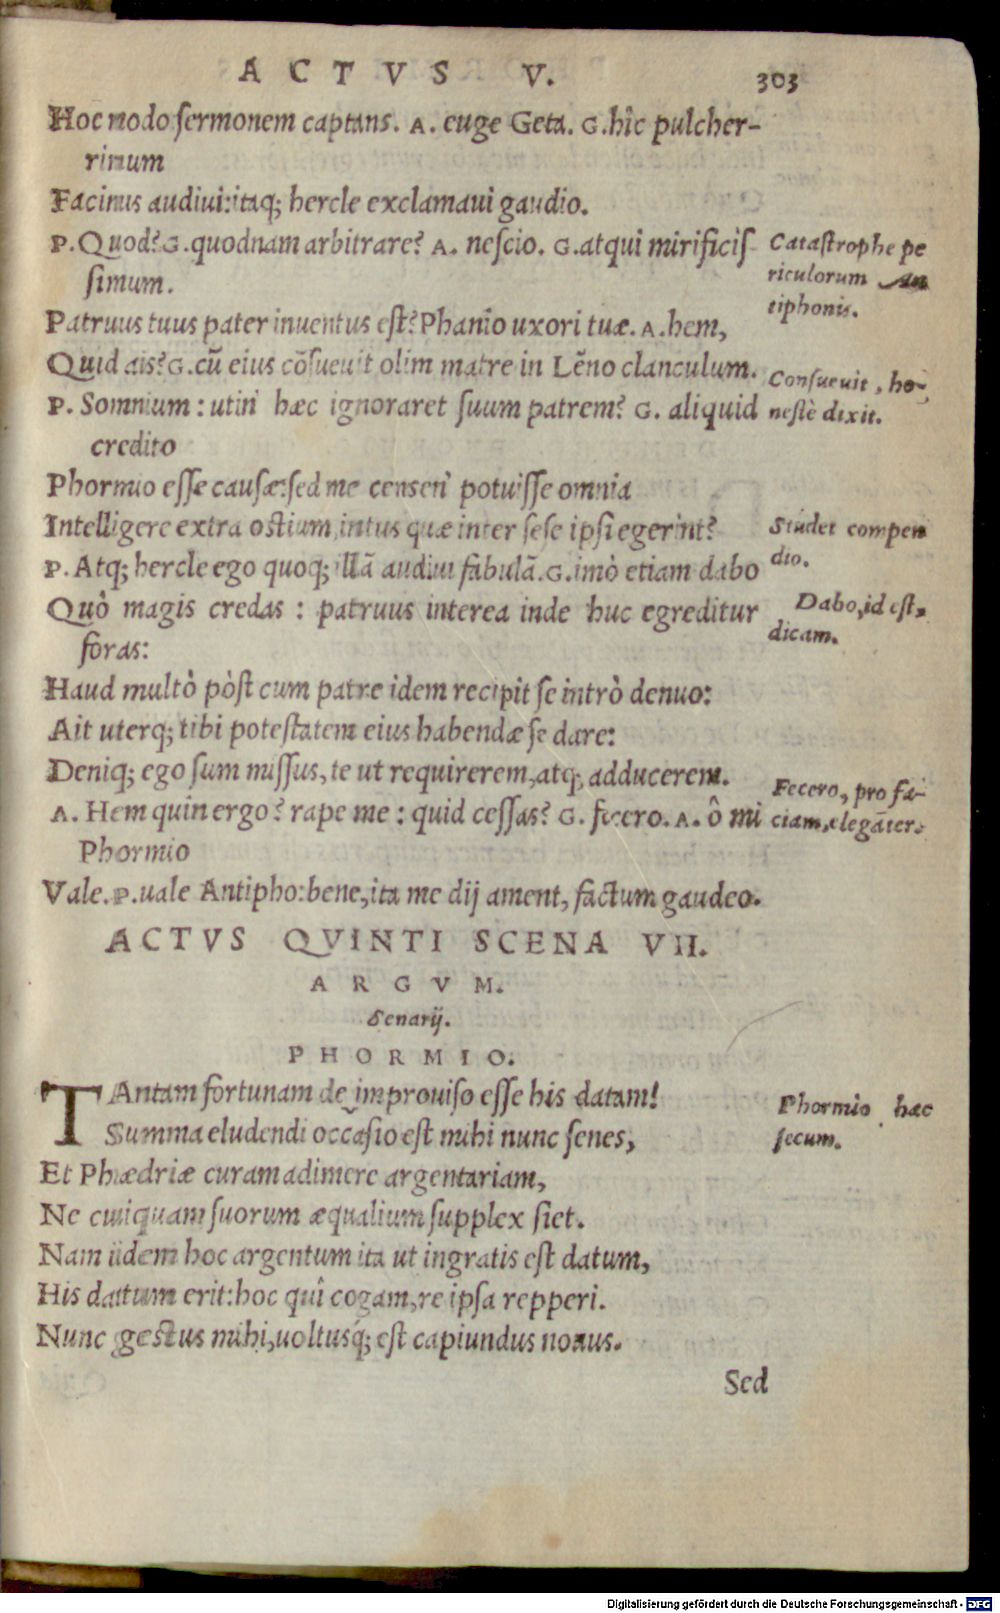 ACTVS V. 303
Hoc modo sermonem captans. A. euge Geta. G. hîc pulcher-
rimum
Facinus audiui: itaq; hercle exclamaui gaudio.
P. Quod? G. quodnam arbitrare? A. nescio. G. atqui mirificis-
simum.
Catastrophe pe
riculorum An
tiphonis.
Patruus tuus pater inuentus est? Phanîo uxori tuæ. A. hem,
Quid ais? G. cũ eius cõsueuit olim matre in Lẽno clanculum.
Consueuit, ho-
nestè dixit.
P. Somnium: utin' hæc ignoraret suum patrem? G. aliquid
credito
Phormio esse causæ: sed me censen' potuisse omnia
Intelligere extra ostium, intus quæ inter sese ipsi egerint?
Studet compen
dio.
P. Atq; hercle ego quoq; illã audiui fabulã. G. imò etiam dabo
Quò magis credas: patruus interea inde huc egreditur
foras:
Dabo, id est,
dicam.
Haud multò pòst cum patre idem recipit se intrò denuo:
Ait uterq; tibi potestatem eius habendæ se dare:
Deniq; ego sum missus, te ut requirerem, atq; adducerem.
A. Hem quin ergo? rape me: quid cessas? G. fecero. A. ô mi
Phormio
Fecero, pro fa-
ciam, elegãter.
Vale. P. uale Antipho: bene, ita me dij ament, factum gaudeo.
ACTVS QVINTI SCENA VII.
ARGVM.
Senarij.
PHORMIO.
TAntam fortunam de improuiso esse his datam!
Summa eludendi occasio est mihi nunc senes,
Phormio hæc
secum.
Et Phædriæ curam adimere argentariam,
Ne cuiquam suorum æqualium supplex siet.
Nam iidem hoc argentum ita ut ingratis est datum,
His datum erit: hoc quî cogam, re ipsa repperi.
Nunc gestus mihi, uoltusq́; est capiundus nouus.
Sed
Digitalisierung gefördert durch die Deutsche Forschungsgemeinschaft - DFG